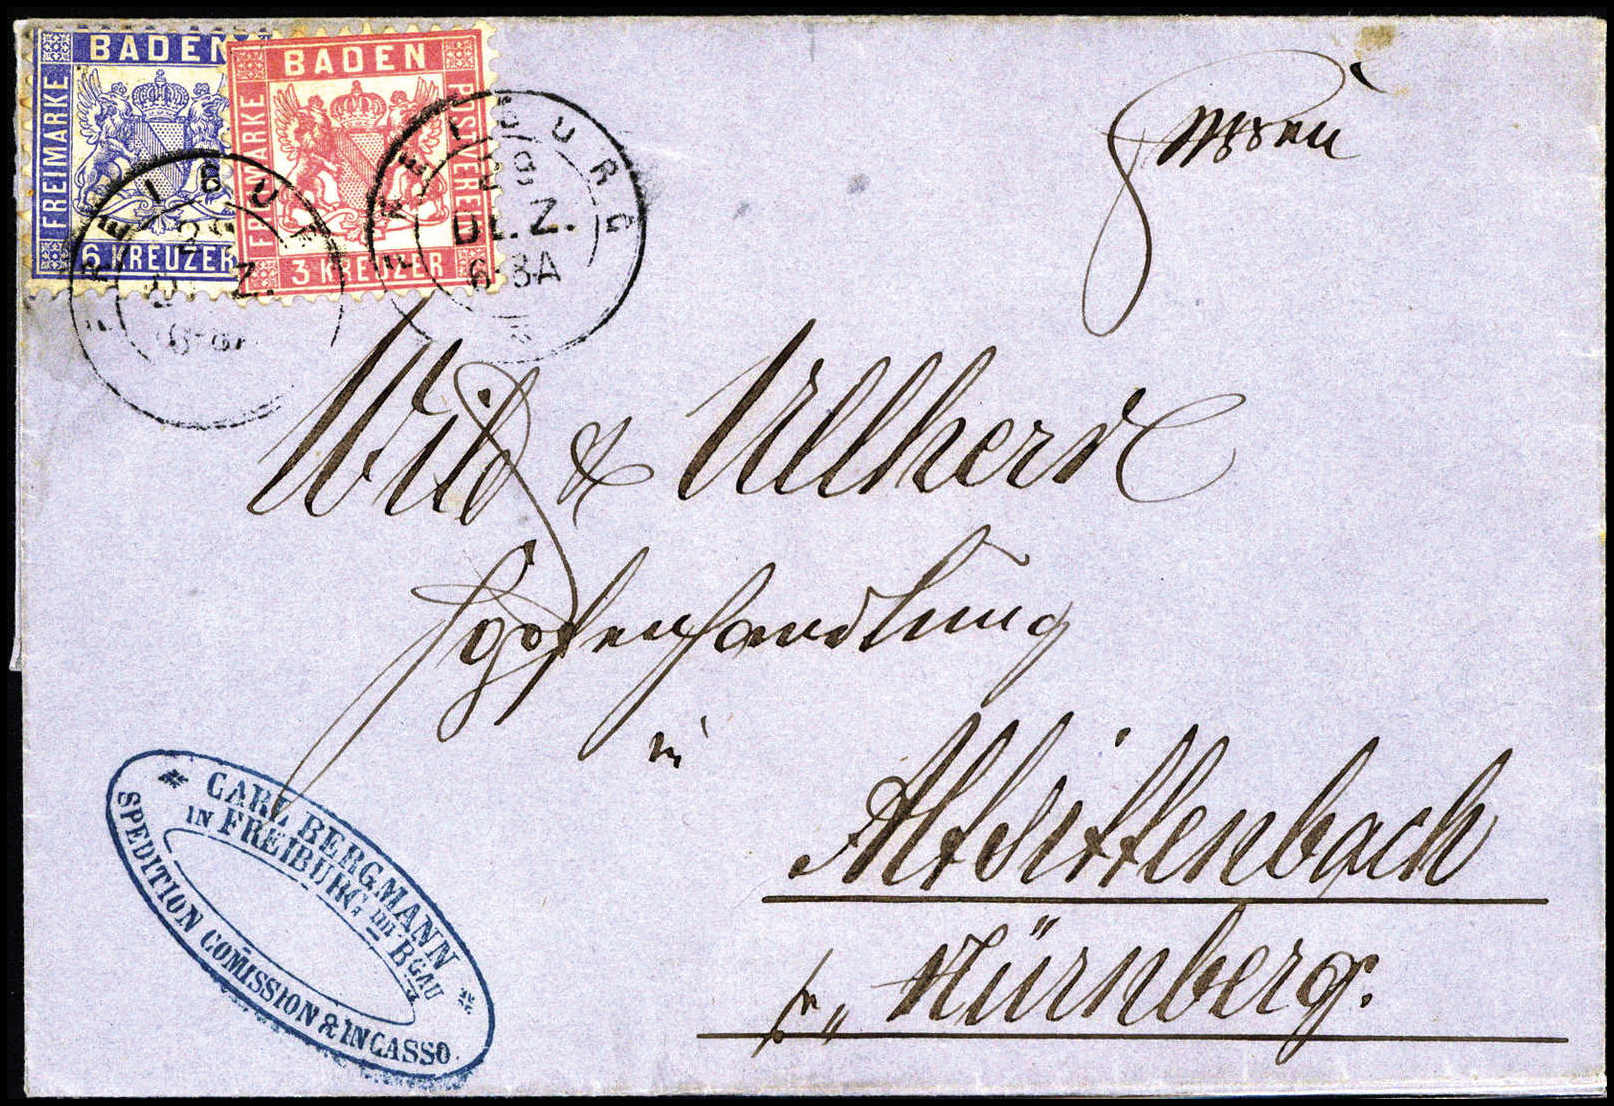 BADEN
FREIMARKE
6 KREUZER
BADEN
FREIMARKE
POSTVEREIN
3 KREUZER
FREIBURG
DEZ.
FREIBURG
29
DEZ.
6-8A
Wiß & Ullherr
Hopfenhandlung
in
Altsittenbach
pr „ Nürnberg.
CARL BERGMANN
IN FREIBURG IM BGAU
SPEDITION COMISSION & INCASSO.